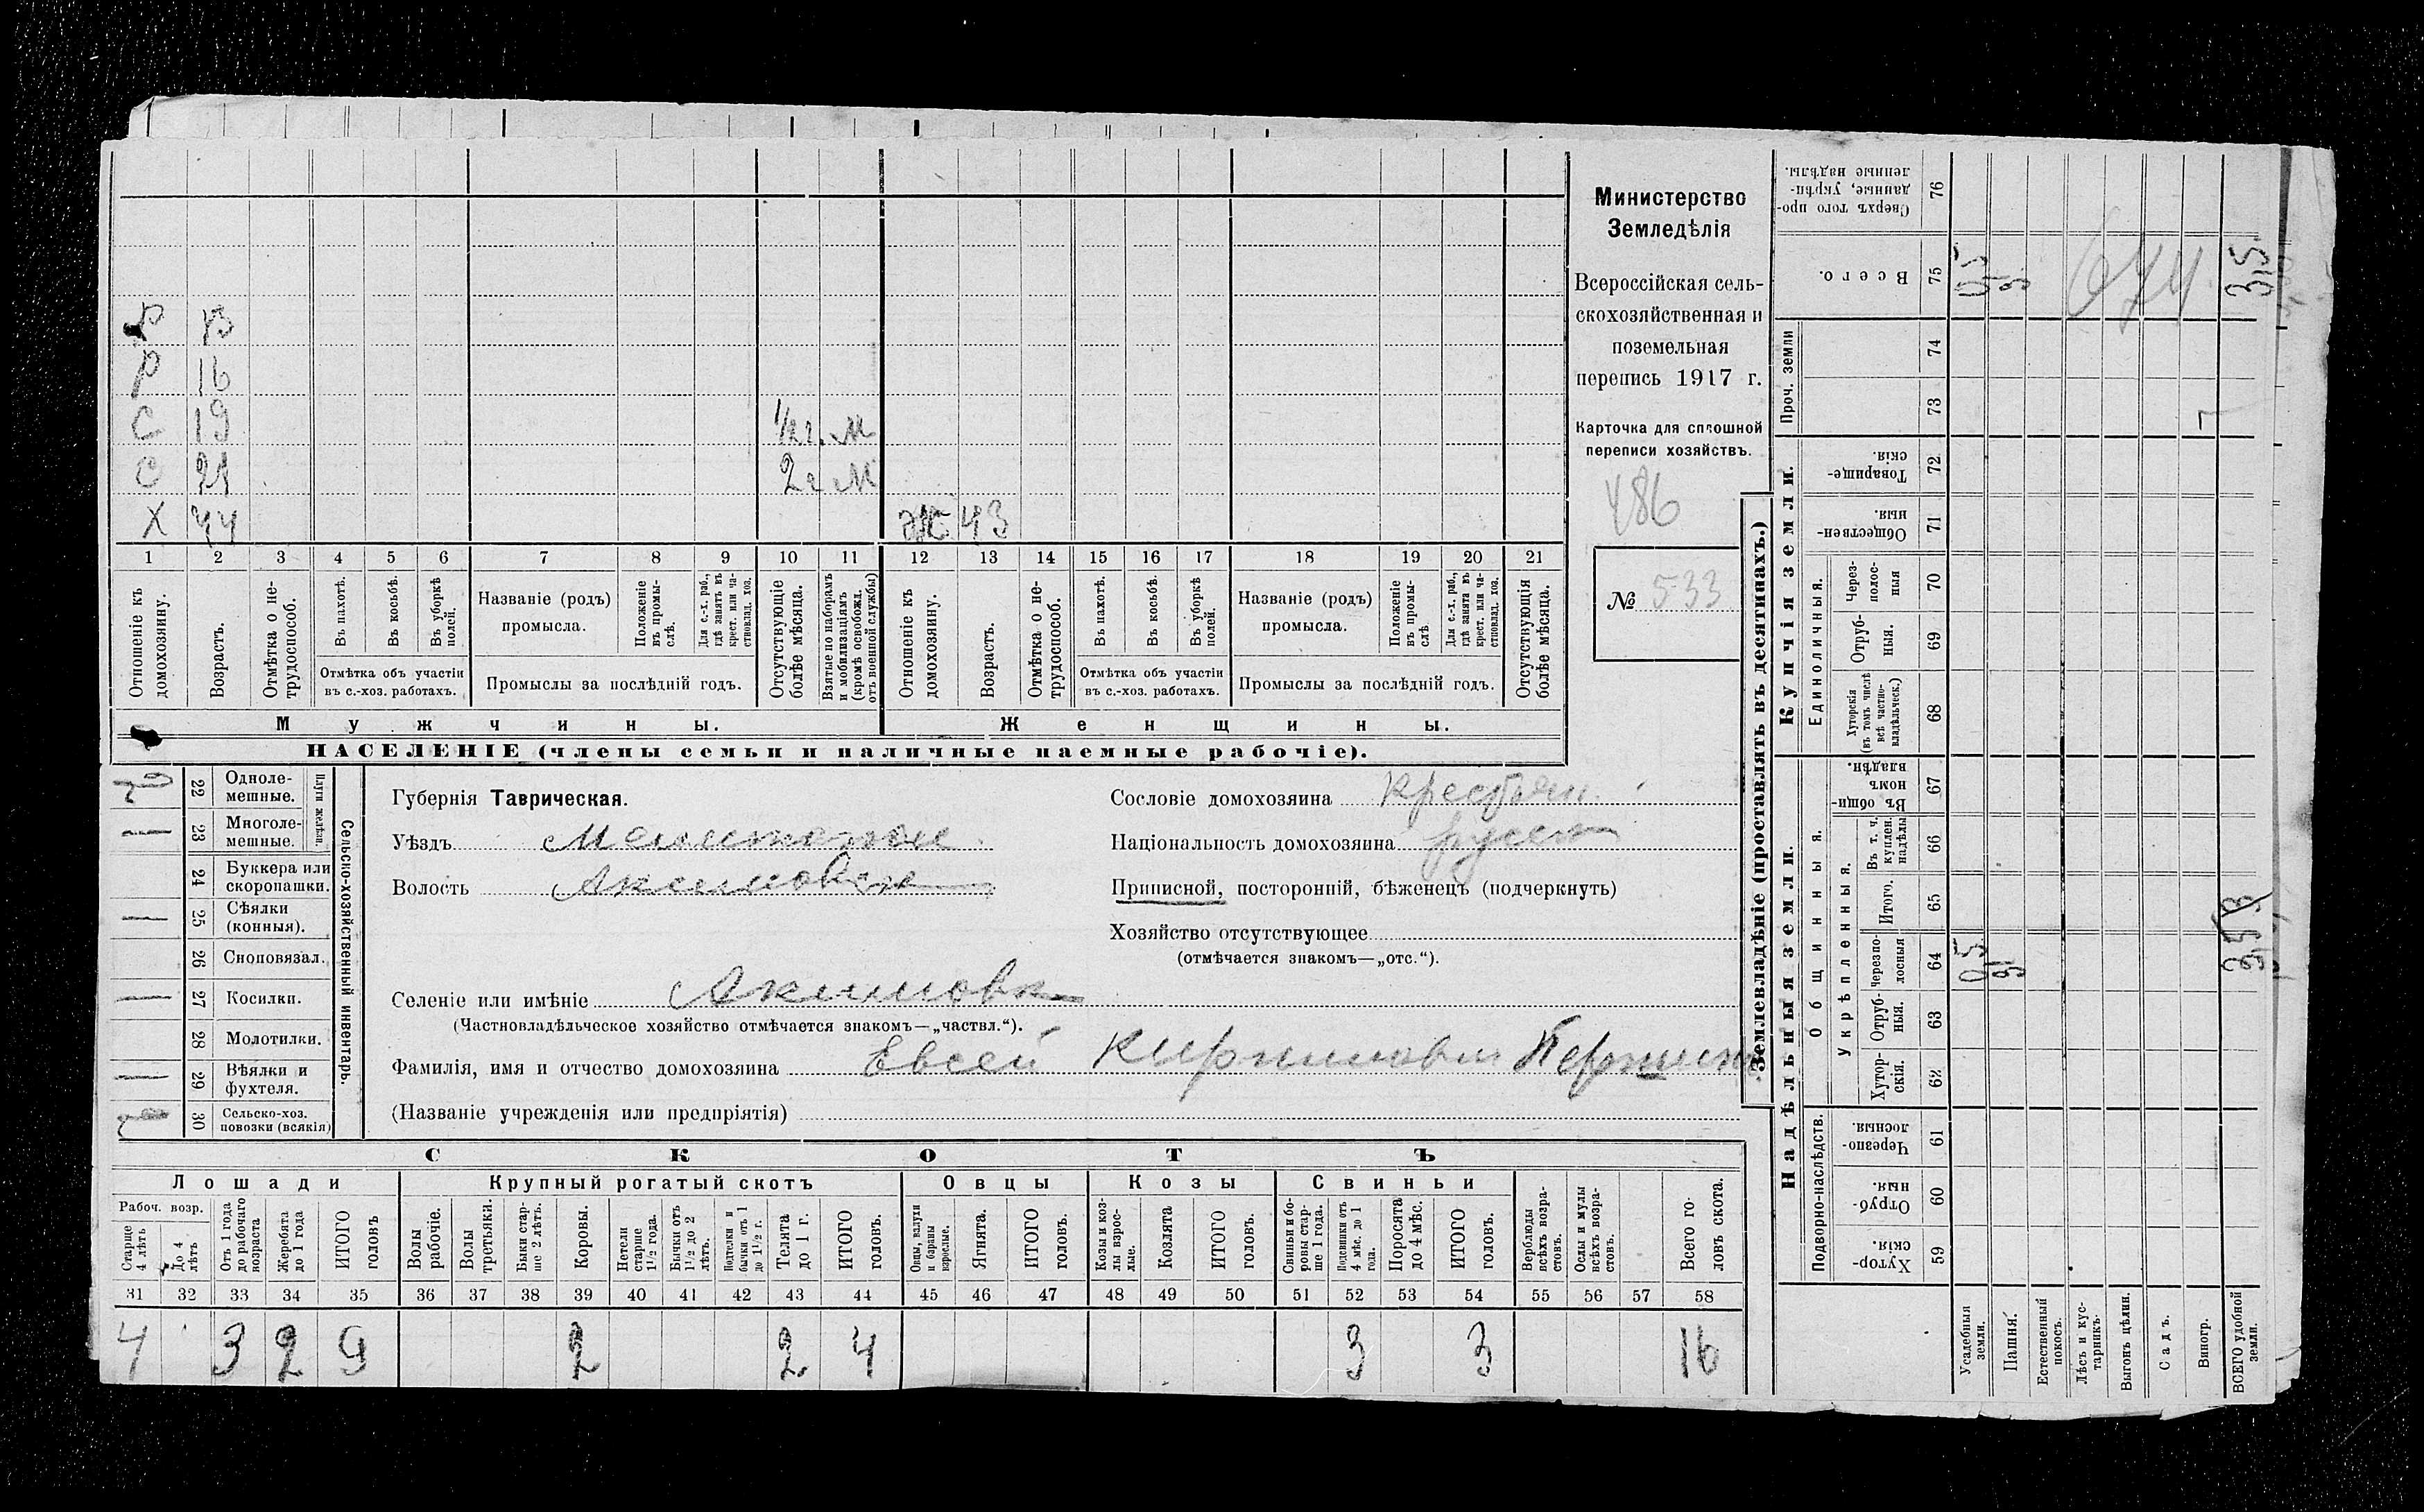 Р 13
Р 16
С 19 1/2 г. М
С 21 2 г М
Х 44 Ж 43
1 2 3 4 5 6 7 8 9 10 11 12 13 14 15 16 17 18 19 20 21
Отношеніе къ домохозяину.
Возрастъ.
Отмѣтка о не-
трудоспособ.
Въ пахотѣ.
Въ косьбѣ.
Въ уборкѣ полей.
Отмѣтка объ участіи
въ с.-хоз. работахъ.
Названіе (родъ)
промысла.
Положеніе въ промы-
слѣ.
Для с.-х. раб., гдѣ занятъ въ крест. или ча-
стновлад. хоз.
Промыслы за послѣдній годъ.
Отсутствующіе болѣе мѣсяца.
Взятые по наборамъ и мобилизаціямъ (кромѣ освобожд. отъ военной службы)
Отношеніе къ домохозяину.
Возрастъ.
Отмѣтка о не-
трудоспособ.
Въ пахотѣ.
Въ косьбѣ.
Въ уборкѣ полей.
Отмѣтка объ участіи
въ с.-хоз. работахъ.
Названіе (родъ)
промысла.
Положеніе въ промы-
слѣ
Для с.-х. раб., гдѣ занята въ крест. или ча-
стновлад. хоз.
Промыслы за послѣдній годъ.
Отсутствующія болѣе мѣсяца.
Мужчины.
Женщины.
НАСЕЛЕНІЕ (члены семьи и наличные наемные рабочіе).
Министерство
Земледѣлія
Всероссійская сель-
скохозяйственная и
поземельная
перепись 1917 г.
Карточка для сплошной
переписи хозяйствъ.
486
№ 533
Сельско-хозяйственный инвентарь.
Плуги желѣзн.
22 Одноле-
мешные.
23 Многоле-
мешные.
24 Буккера или
скоропашки.
25 Сѣялки
(конныя).
26 Сноповязал.
27 Косилки.
28 Молотилки.
29 Вѣялки и
фухтеля.
30 Сельско-хоз.
повозки (всякія)
Губернія Таврическая.
Уѣздъ
Волость
Селеніе или имѣніе Акимовка
(Частновладѣльческое хозяйство отмѣчается знакомъ—„частвл.“).
Фамилія, имя и отчество домохозяина Евсей
(Названіе учрежденія или предпріятія)
Сословіе домохозяина крестьян.
Національность домохозяина русск
Приписной, посторонній, бѣженецъ (подчеркнуть)
Хозяйство отсутствующее
(отмѣчается знакомъ—„отс.“).
СКОТЪ
Лошади Крупный рогатый скотъ Овцы Козы Свиньи
Рабоч. возр.
Старше 4 лѣтъ
До 4 лѣтъ
Отъ 1 года до рабочаго возраста
Жеребята до 1 года
ИТОГО головъ
Волы рабочіе.
Волы третьяки.
Быки стар-
ше 2 лѣтъ.
Коровы.
Нетели старше 1½ года.
Бычки отъ 1½ до 2 лѣтъ.
Подтелки и бычки отъ 1 до 1½ г.
Телята до 1 г.
ИТОГО головъ.
Овцы, валухи и бараны взрослые.
Ягнята.
ИТОГО головъ.
Козы и коз-
лы взрос-
лые.
Козлята
ИТОГО головъ.
Свиньи и бо-
ровы стар-
ше 1 года.
Подсвинки отъ 4 мѣс. до 1 года.
Поросята до 4 мѣс.
ИТОГО головъ.
Верблюды всѣхъ возра-
стовъ.
Ослы и мулы всѣхъ возра-
стовъ.
Всего го-
ловъ скота.
31 32 33 34 35 36 37 38 39 40 41 42 43 44 45 46 47 48 49 50 51 52 53 54 55 56 57 58
4 3 2 9 2 2 4 3 3 16
Землевладѣніе (проставлять въ десятинахъ.)
Надѣльныя земли.
Купчія земли.
Подворно-наслѣдств.
Общинныя.
Укрѣпленныя.
Единоличныя.
Проч. земли
Сверхъ того про-
данные, укрѣп-
ленные надѣлы. 76
Всего. 75 0,5 3 3,5
674
74
73
Товарище-
скія. 72
Обществен-
ныя. 71
Через-
полос-
ныя 70
Отруб-
ныя. 69
Хуторскія (въ томъ числѣ всѣ частно-
владѣльческ.) 68
Въ общи-
номъ владѣн. 67
Въ т. ч. куплен. надѣлы 66
Итого. 65
Черезпо-
лосныя 64 0,5 3 3,5
Отруб-
ныя. 63
Хутор-
скія. 62
Черезпо-
лосныя. 61
Отруб-
ныя. 60
Хутор-
скія. 59
Усадебныя земли.
Пашня.
Естественный покосъ.
Лѣсъ и кус-
тарникъ.
Выгонъ цѣлин.
Садъ.
Виногр.
ВСЕГО удобной земли.